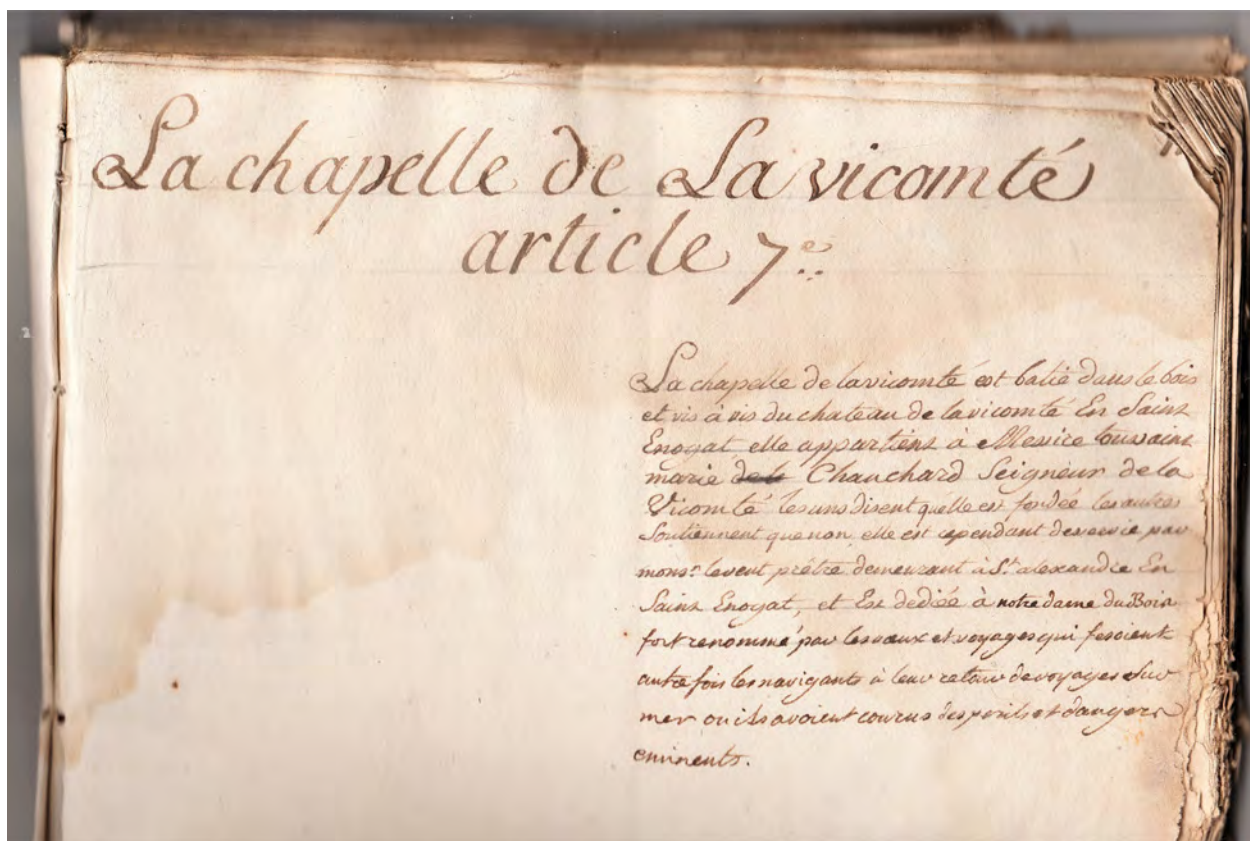 La chapelle de La vicomté
article 7e
La chapelle de lavicomté est batie dans le bois
et vis à vis du chateau de lavicomté En Saint
Enogat elle appartient à Messire toussaint
marie de la Chauchard Seigneur de la
Vicomté les uns disent qu'elle est fondée les autres
Soutiennent que non, elle est cependant desservie par
monsr. levent prêtre demeurant à St. alexandre En
Saint Enogat, et Est dediée à notre dame du Bois
fort renommé par les vœux et voyages qui fesoient
autre fois les navigants à leur retour de voyages Sur
mer ou ils avoient courus des perils et dangers
eminents.